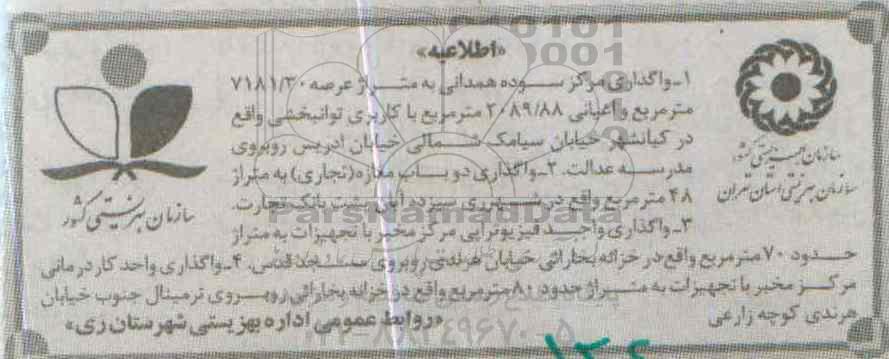 «اطلاعیه»
۱ـ واگذاری مراکز ستوده همدانی به متراژ عرصه ۷۱۸۱/۳۰
مترمربع و اعیانی ۲۰۸۹/۸۸ مترمربع با کاربری توانبخشی واقع
در کیانشهر خیابان سیامک شمالی خیابان ادریس روبروی
مدرسه عدالت. ۲ـ واگذاری دو باب مغازه (تجاری) به متراژ
۴۸ مترمربع واقع در شهرری سیزده آبان پشت بانک تجارت.
۳ـ واگذاری واحد فیزیوتراپی مرکز مخبر با تجهیزات به متراژ
حدود ۷۰ مترمربع واقع در خزانه بخارائی خیابان هرندی روبروی مسجد قدس. ۴ـ واگذاری واحد کاردرمانی
مرکز مخبر با تجهیزات به متراژ حدود ۸۰ مترمربع واقع در خزانه بخارائی روبروی ترمینال جنوب خیابان
هرندی کوچه زارعی
«روابط عمومی اداره بهزیستی شهرستان ری»
سازمان بهزیستی کشور
سازمان بهزیستی استان تهران
سازمان بهزیستی کشور
ParsNamadData